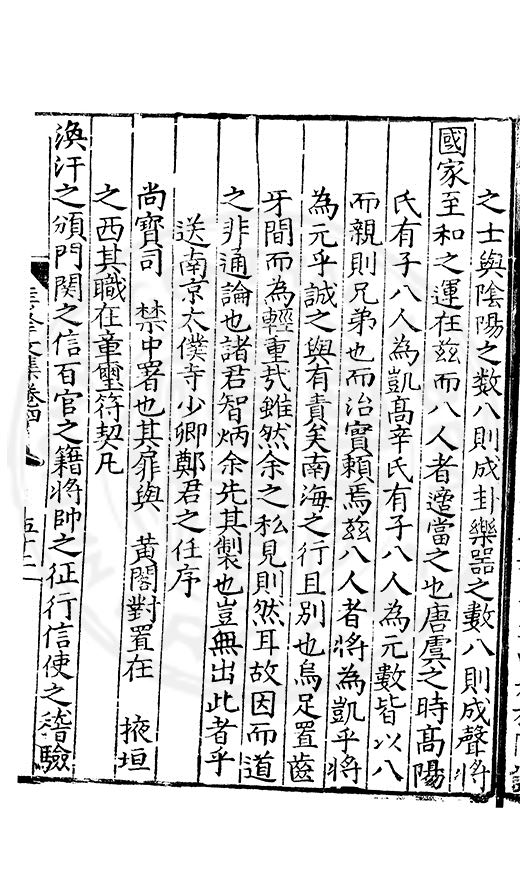 之士與陰陽之數八則成卦樂器之數八則成聲將
國家至和之運在茲而八人者適當之也唐虞之時髙陽
氏有子八人為凱髙辛氏有子八人為元數皆以八
而親則兄弟也而治實賴焉茲八人者將為凱乎將
為元乎誠之與有責矣南海之行且別也烏足置齒
牙間而為輕重㦲雖然余之私見則然耳故因而道
之非通論也諸君智炳余先其製也豈無出此者乎
送南京太僕寺少卿鄭君之任序
尚寶司　禁中署也其扉與　黃閣對置在　掖垣
之西其職在章璽符契凡
渙汗之頒門関之信百官之籍將帥之征行信使之稽驗
文集卷四
五十二